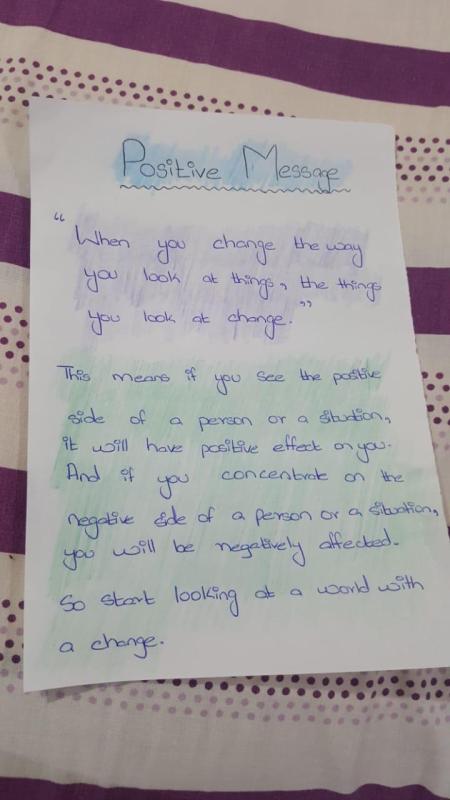 Positive Message
"When you change the way
you look at things, the things
you look at change."
This means if you see the positive
side of a person or a situation,
it will have positive effect on you.
And if you concentrate on the
negative side of a person or a situation,
you will be negatively affected.
So start looking at a world with
a change.